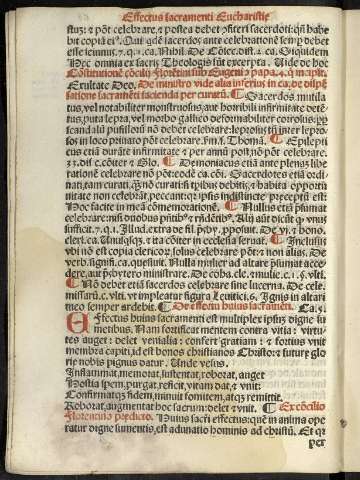 Effectus sacramenti Eucharistie
stus: & potest celebrare, & postea debet cōfiteri sacerdoti: qn̄ habe
bit copiā ei⁹. Qui qdē sacerdos ante celebrationē semp debet
esse ieiunus. 7. q. 1. ca. Nihil. De cōsec. dist. 2. ca. Siquidem
Hec omnia ex sacris Theologis sūt excerpta. Uide de hoc
Exultate Deo. De ministro vide alia inferius in ca. de dispē
satione sacramēti facienda per curatū. ¶ Sacerdos mutila
tus, vel notabiliter monstruosus, aut horribili infirmitate detē
tus, puta lepra, vel morbo gallico deformabiliter corrosus: ꝓpter
scandalū pusilloꝝ nō debet celebrare: leprosus tn̄ inter lepro
sos in loco priuato pōt celebrare. Fm. s. Thomā. ¶ Epilepti
cus etiā durāte infirmitate & per annū post nō pōt celebrare.
33. dist. c. cōiter & Glo. ¶ Demoniacus etiā ante plenā libe
rationē celebrare nō pōt: eodē ca. cōi. Sacerdotes etiā ordi
nati, tam curati, q̄ nō curati: si tpibus debitis, & habita opportu
nitate non celebrāt, peccant: qr ipsis indistincte preceptū est:
Hoc facite in meā cōmemorationē. ¶ Nullus etiā p̄sumat
celebrare: nisi duobus pn̄tib⁹ & rn̄dētib⁹. Alij aūt dicūt q vnus
sufficit. 7. q. 1. Illud. extra de fil. p̄sby. ꝓposuit. De vi. & hono.
cleri. ca. Uniusq̄sq. & ita cōiter in ecclesia seruat. ¶ Inclusus
vbi nō est copia clericoꝝ, solus celebrare pōt: & non alias. De
verb. signifi. ca. quesiuit. Nulla mulier ad altare p̄sumat acce
dere, aut p̄sbytero ministrare. De coha. cle. & mulie. c. 1. §. vlti.
¶ Nō debet etiā sacerdos celebrare sine lucerna. De cele.
missarū. c. vlti. vt impleatur figura Leuitici. 6. Ignis in altari
meo semper ardebit. ¶ De effectu huius sacramēti. Ca. 5.
Effectus huius sacramenti est multiplex ipsum digne su
mentibus. Nam fortificat mentem contra vitia: virtu-
tes auget: delet venialia: confert gratiam: & fortius vnit
membra capiti, id est bonos christianos Christo: & future glo
rie nobis pignus datur. Unde versus.
Inflammat, memorat, sustentat, roborat, auget
Hostia spem, purgat, reficit, vitam dat, & vnit:
Confirmatq fidem, minuit fomitem, atq remittit.
Roborat, augmentat hoc sacrum: delet & vnit. ¶ Ex cōcilio
Florentino predicto. Huius sacrī effectus: quē in anima ope
ratur digne sumentis, est adunatio hominis ad christū. Et qr
per